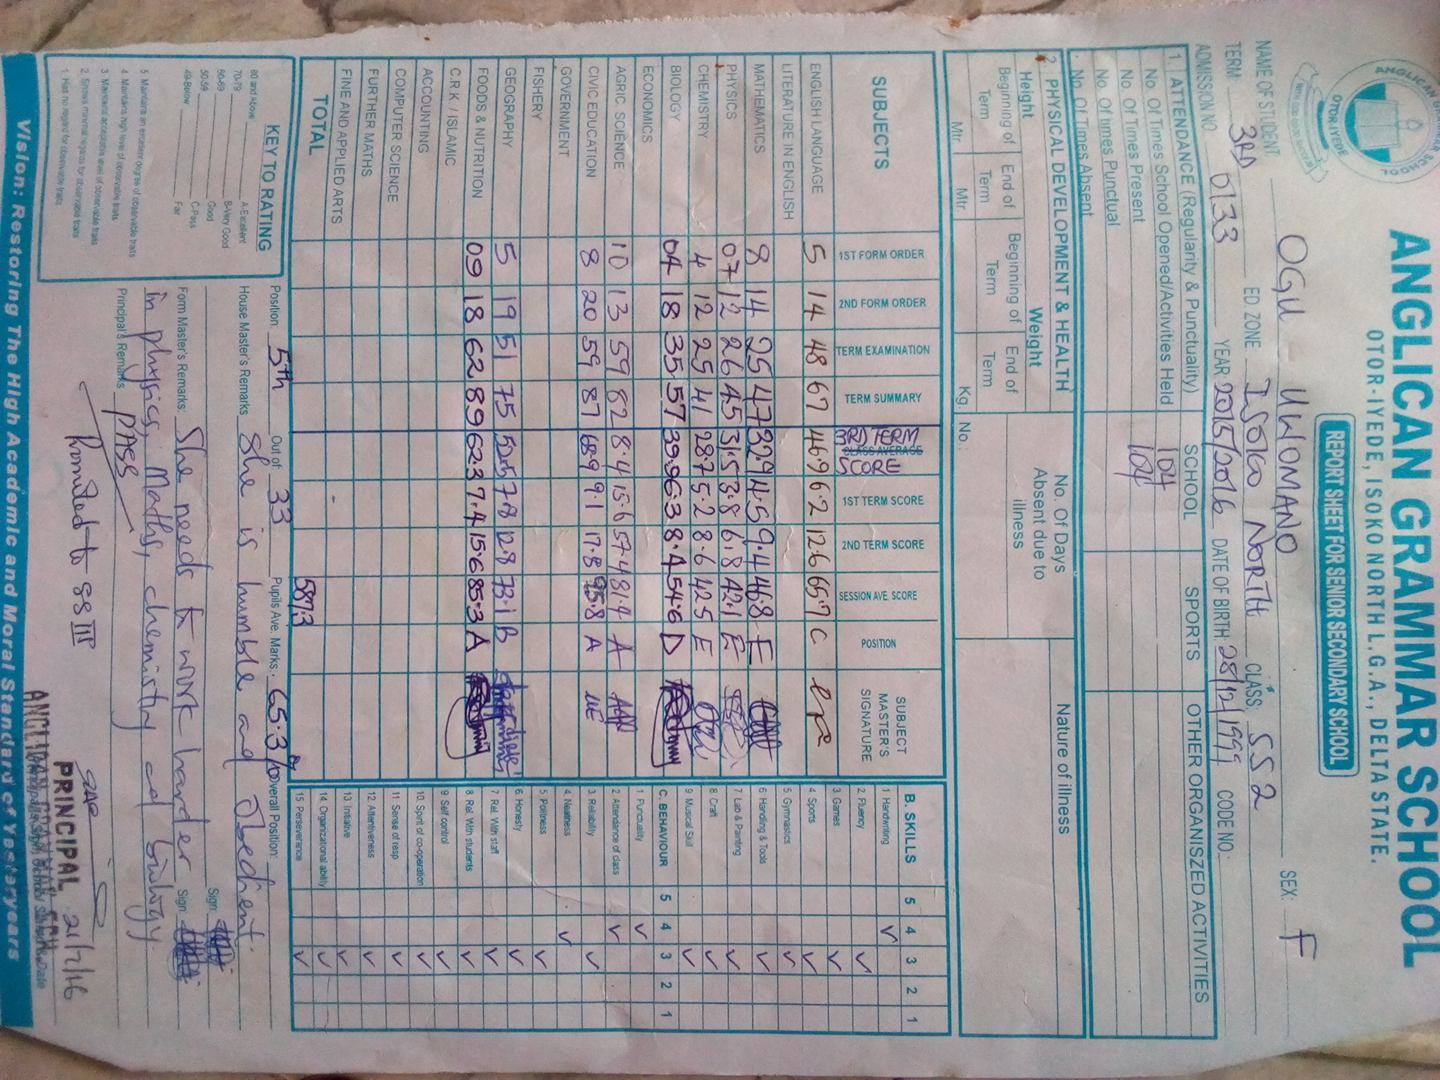 ANGLICAN GRAMMAR SCHOOL
OTOR-IYEDE, ISOKO NORTH L.G.A., DELTA STATE.
REPORT SHEET FOR SENIOR SECONDARY SCHOOL
NAME OF STUDENT OGU UWOMANO SEX: F
TERM 3RD ED ZONE ISOKO NORTH CLASS: SS2
ADMISSION NO 0133 YEAR 2015/2016 DATE OF BIRTH 28/12/1999 CODE NO:
1. ATTENDANCE (Regularity & Punctuality) SCHOOL SPORTS OTHER ORGANISZED ACTIVITIES
No. Of Times School Opened/Activities Held 104
No. Of Times Present 104
No. Of times Punctual
No. Of Times Absent
2. PHYSICAL DEVELOPMENT & HEALTH
Height Weight No. Of Days Absent due to illness Nature of illness
Beginning of Term End of Term Beginning of Term End of Term
Mtr Mtr Kg No.
SUBJECTS 1ST FORM ORDER 2ND FORM ORDER TERM EXAMINATION TERM SUMMARY 3RD TERM SCORE 1ST TERM SCORE 2ND TERM SCORE SESSION AVE. SCORE POSITION SUBJECT MASTER'S SIGNATURE
ENGLISH LANGUAGE 5 14 48 67 46.9 6.2 12.6 65.7 C
LITERATURE IN ENGLISH
MATHEMATICS 8 14 25 47 32.9 4.5 9.4 46.8 E
PHYSICS 07 12 26 45 31.5 3.8 6.8 42.1 E
CHEMISTRY 4 12 25 41 28.7 5.2 8.6 42.5 E
BIOLOGY 04 18 35 57 39.9 6.3 8.4 54.6 D
ECONOMICS
AGRIC. SCIENCE 10 13 59 82 A
CIVIC EDUCATION 8 20 59 87 9.1 17.8 A
GOVERNMENT
FISHERY
GEOGRAPHY 5 19 51 75 52.5 7.8 12.8 73.1 B
FOODS & NUTRITION 09 18 62 89 62.3 7.4 15.6 85.3 A
C.R.K. ISLAMIC
ACCOUNTING
COMPUTER SCIENCE
FURTHER MATHS
FINE AND APPLIED ARTS
TOTAL 587.3
B. SKILLS 5 4 3 2 1
1 Handwriting
2 Fluency
3 Games
4 Sports
5 Gymnastics
6 Handling & Tools
7 Lab & Painting
8 Craft
9 Musical Skill
C. BEHAVIOUR 5 4 3 2 1
1 Punctuality
2 Attendance of class
3 Reliability
4 Neatness
5 Politness
6 Honesty
7 Rel. With staff
8 Rel. With students
9 Self control
10 Spirit of co-operation
11 Sense of resp
12 Attentiveness
13 Initiative
14 Organizational ability
15 Perseverance
KEY TO RATING
80 and Above A-Excellent
70-79 B-Very Good
60-69 Good
50-59 C-Pass
49-Below Fair
5 Maintains an excellent degree of observable traits
4 Maintains high level of observable traits
3 Maintains acceptable level of observable traits
2. Shows minimal regards for observable traits
1. Has no regard for observable traits
Position: 5th Out of: 33 Pupils Ave. Marks: 65.3% Overall Position:
House Master's Remarks She is humble and obedient. Sign:
Form Master's Remarks: She needs to work harder Sign:
in physics, Maths, chemistry and biology
Principal's Remarks PASS
Promoted to SS III
PRINCIPAL 21/7/16
Vision: Restoring The High Academic and Moral Standard of Yesteryears